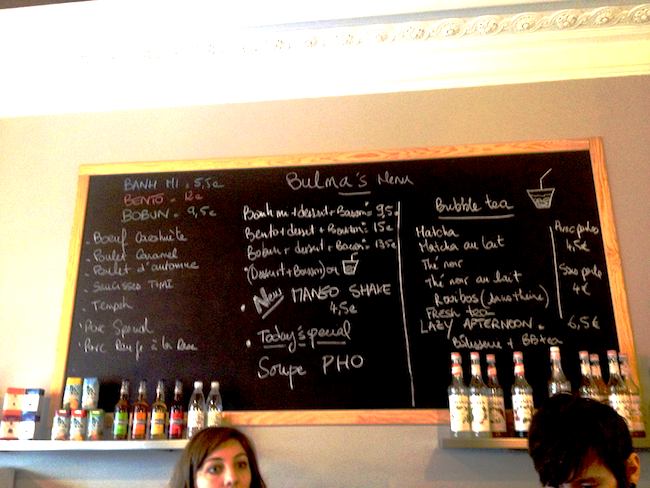 Bulma's Menu
BANH MI = 5,5€
BENTO = 12€
BOBUN = 9,5€
- Boeuf Cacahuète
- Poulet Caramel
- Poulet d'automne
- SAUCISSE THAI
- Tempeh
- Porc Special
- Porc Rouge à la
Banh mi + dessert + Boisson = 9,5€
Bento + dessert + Boisson = 15€
Bobun + dessert + Boisson = 13,5€
(Dessert + Boisson) ou
- New MANGO SHAKE
4,5€
- Today's special
Soupe PHO
Bubble tea
Matcha
Matcha au lait
Thé noir
Thé noir au lait
Rooibos (sans théine)
FRESH tea
Avec perles
4,5€
Sans perle
4€
LAZY AFTERNOON = 6,5€
Pâtisserie + BB tea